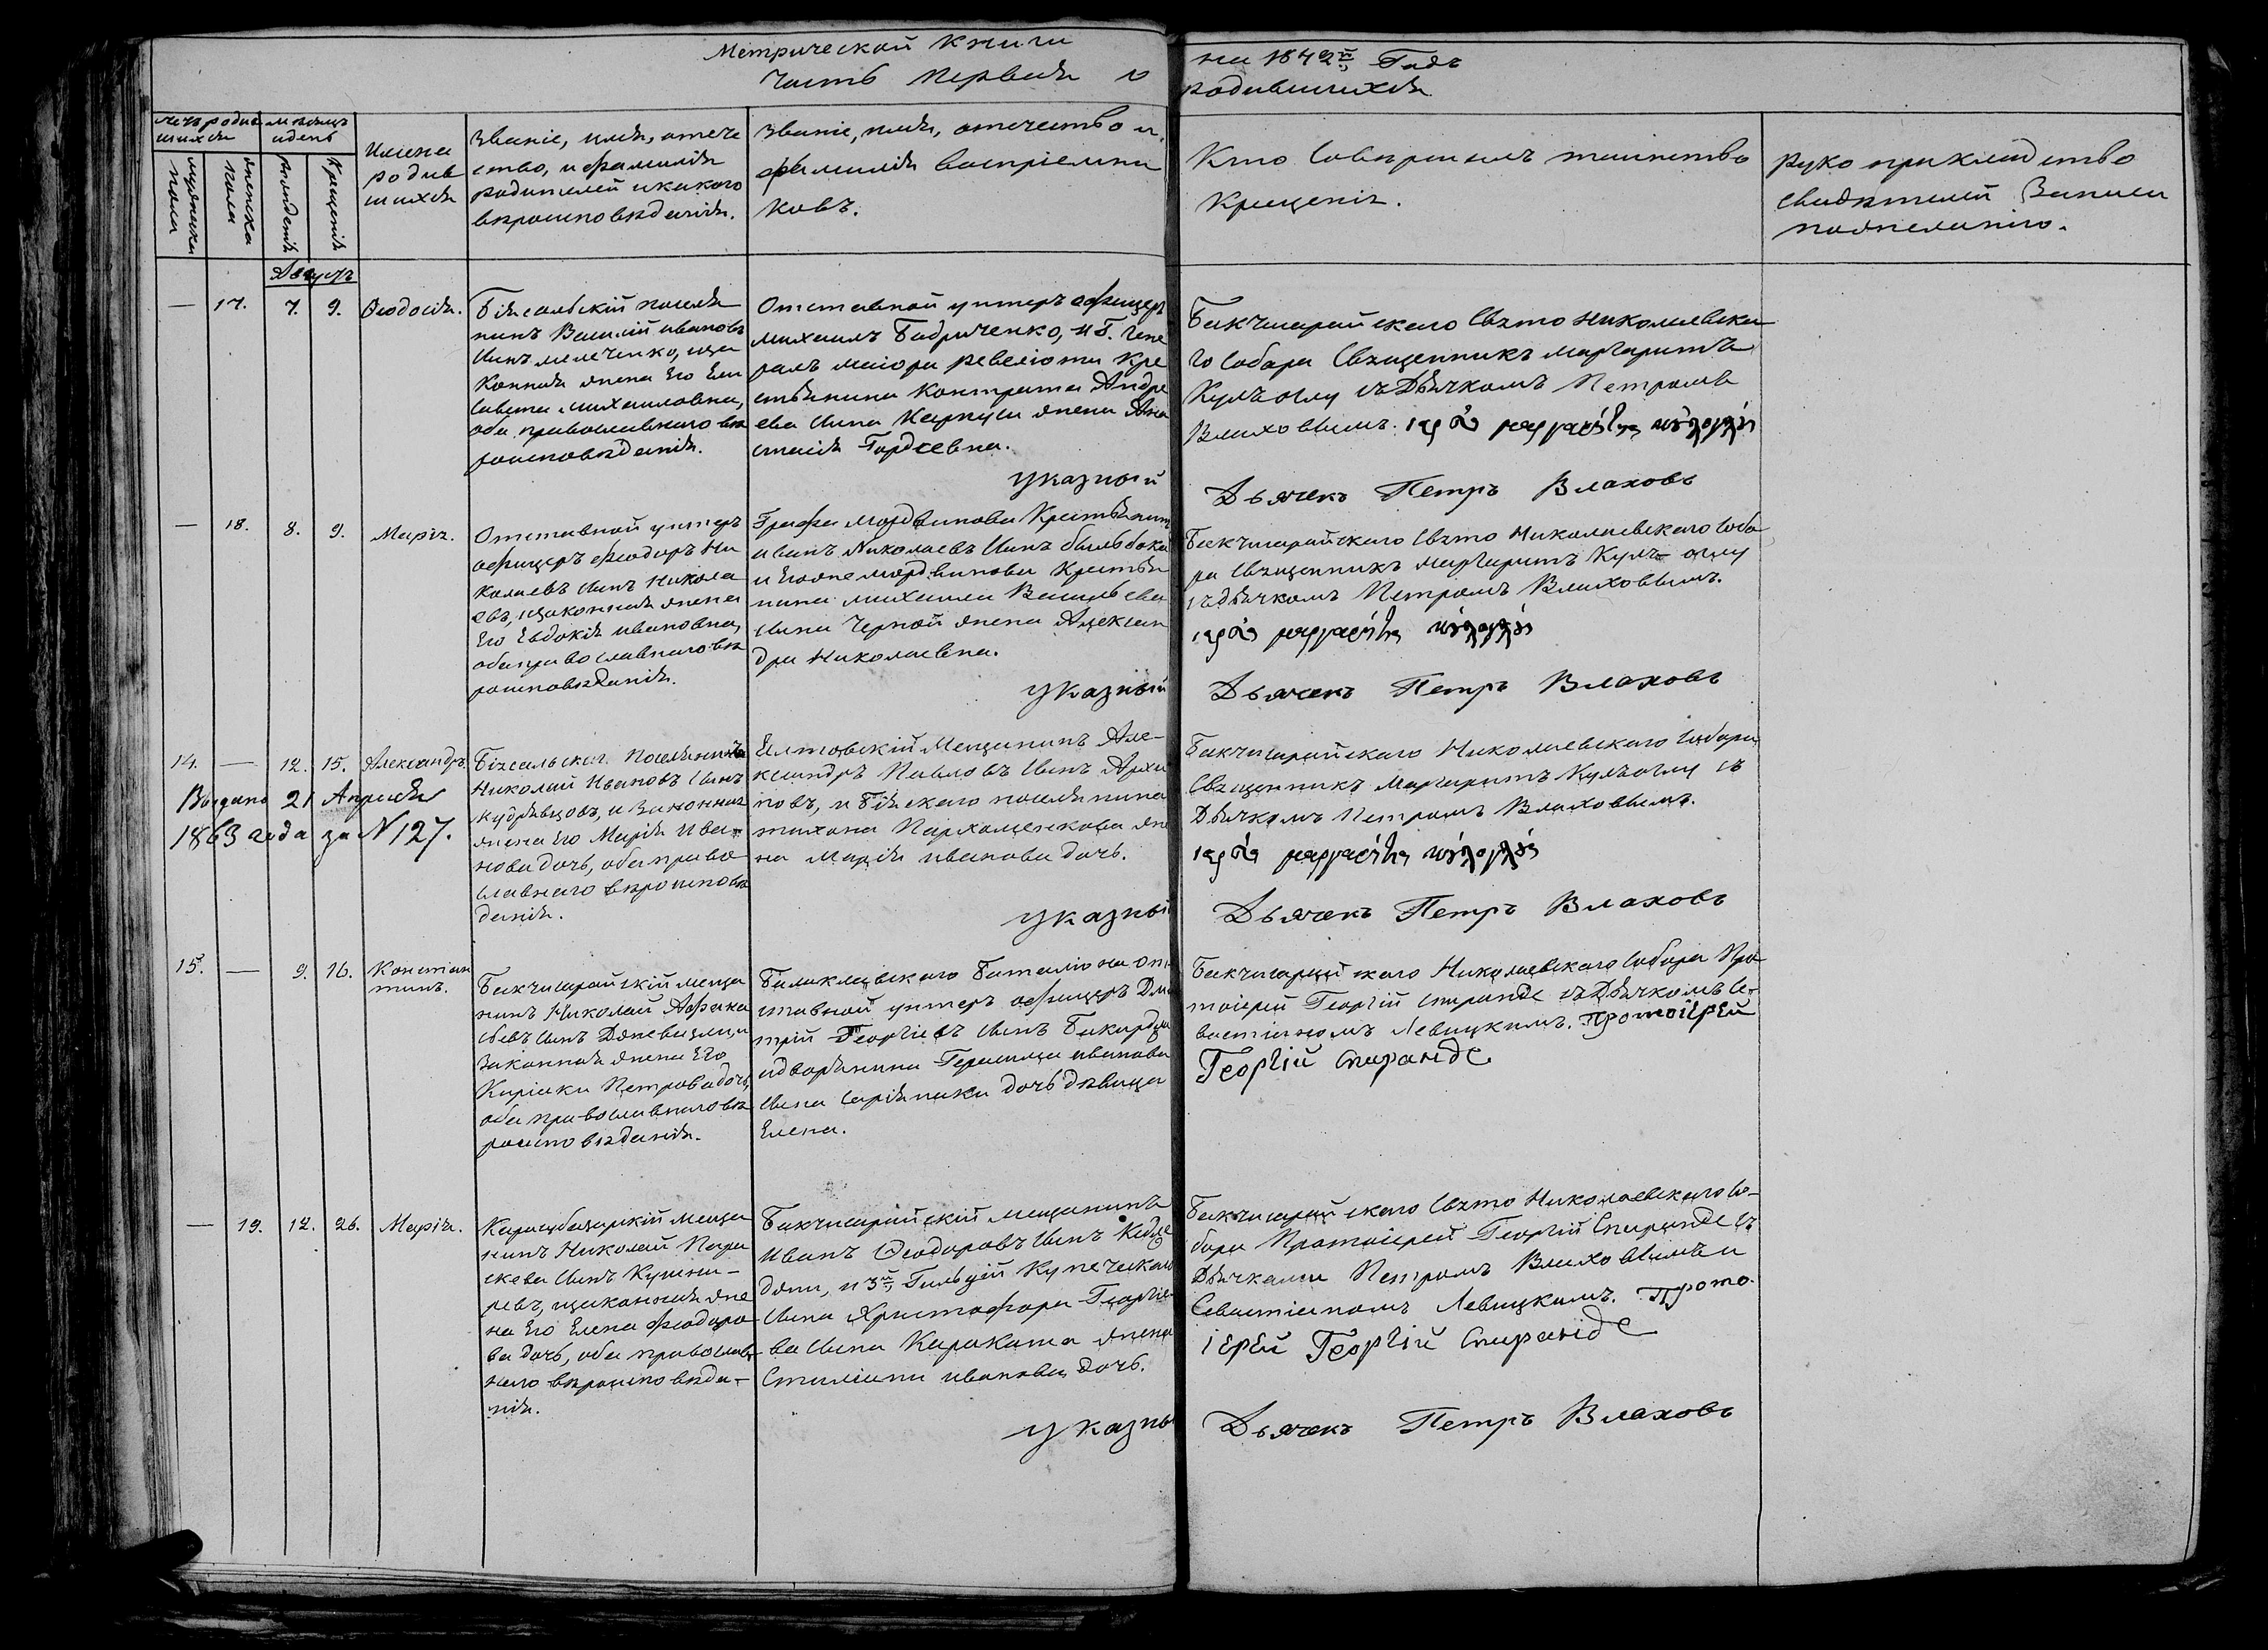 Метрической Книги на 1842й Годъ
Часть первая о родившихся
Счетъ родив-
шихся
мужеска
пола
женска
пола
месяцъ
и день
рожденія
Крещенія
Имена
родив
шихся
Званіе, имя, отече
ство, и фамилія
родителей и какого
вѣроисповѣданія.
Званіе, имя, отчество и
фамилія воспріемни
ковъ.
Кто совершалъ таинство
Крещенія.
рукоприкладство
свидѣтелей Записи
по желанію.
Августъ
— 17. 7. 9. Ѳеодосія.
Біясальскій поселя
нинъ Василій Ивановъ
сынъ Мелеченко, и за
конная жена Его Ели
савета Михаиловна,
оба православнаго вѣ
роисповѣданія.
Отставной унтеръ офицеръ
Михаилъ Бадриченко, и Г. Гене
ралъ маіора Ревеліоти Кре
стьянина Контрата Андре
ева сына Карпуши жена Ана
стасія Гордеевна.
Бакчисарайскаго Свято Николаевска
го Собора Священникъ Маргаритъ
Кулъ оглу съ Дьячкомъ Петромъ
Влаховымъ.
Указный Дьячекъ Петръ Влаховъ
— 18. 8. 9. Марія.
Отставной унтеръ
офицеръ Феодоръ Ни
колаевъ сынъ Никола
евъ, и законная жена
Его Евдокія Ивановна,
оба православнаго вѣ
роисповѣданія.
Графа Мордвинова Крестьянинъ
Иванъ Николаевъ сынъ
и Егоже Мордвинова Крестья
нина Михаила Васильева
сына Черной жена Алексан
дра Николаевна.
Бакчисарайскаго Свято Николаевскаго Собо
ра Священникъ Маргаритъ Кулъ-оглу
съ дьячкомъ Петромъ Влаховымъ.
Указный Дьячекъ Петръ Влаховъ
14. — 12. 15. Александръ.
Выдано 21 Апрѣля
1863 года за N 127.
Біясальской Поселянинъ
Николай Ивановъ сынъ
Кудрявцовъ, и Законная
жена Его Марія Ива-
нова дочь, оба право
славнаго вѣроисповѣ
данія.
Ялтовскій Мещанинъ Але-
ксандръ Павловъ сынъ Архи
повъ, и Бійскаго поселянина
Тихона Пархоменкова же
на Марія Иванова дочь.
Бакчисарайскаго Николаевскаго Собора
Священникъ Маргаритъ Кулъоглу съ
Дьячкомъ Петромъ Влаховымъ.
Указный Дьячекъ Петръ Влаховъ
15. — 9. 16. Констан
тинъ.
Бакчисарайскій меща
нинъ Николай Афана
сьевъ сынъ
Законная жена Его
Киріаки Петрова дочь,
оба православнаго вѣ
роисповѣданія.
Балаклавскаго Баталіона от
ставной унтеръ офицеръ Дми
трій Георгіевъ сынъ
и дворянина Герасима Иванова
сына дочь дѣвица
Елена.
Бакчисарайскаго Николаевскаго Собора Про
тоіерей Георгій Спиранде съ Дьячкомъ Се-
вастіаномъ Левицкимъ. Протоіерей
Георгій Спиранде
— 19. 12. 26. Марія.
Карасубазарскій меща
нинъ Николай Пара
скева сынъ Кушна-
ревъ, и законная же
на Его Елена Феодоро
ва дочь, оба православ
наго вѣроисповѣда-
нія.
Бакчисарайскій мещанинъ
Иванъ Ѳеодоровъ сынъ
и 3й Гильдіи Купеческаго
сына Христофора Георгіе
ва сына Караката жена
Стиліани Иванова дочь.
Бакчисарайскаго Свято Николаевскаго Со-
бора Протоіерей Георгій Спиранде съ
Дьячками Петромъ Влаховымъ и
Севастіаномъ Левицкимъ. Прото-
іерей Георгій Спиранде
Указный Дьячекъ Петръ Влаховъ